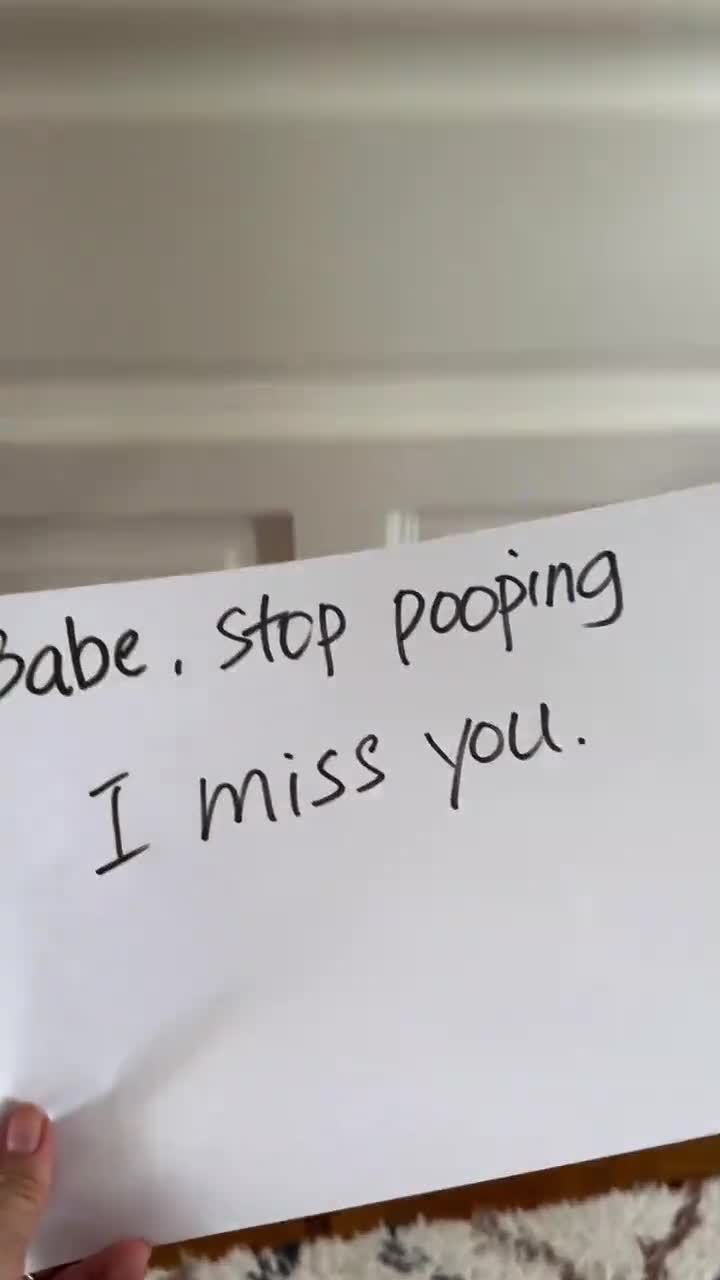 Babe. Stop pooping
I miss you.